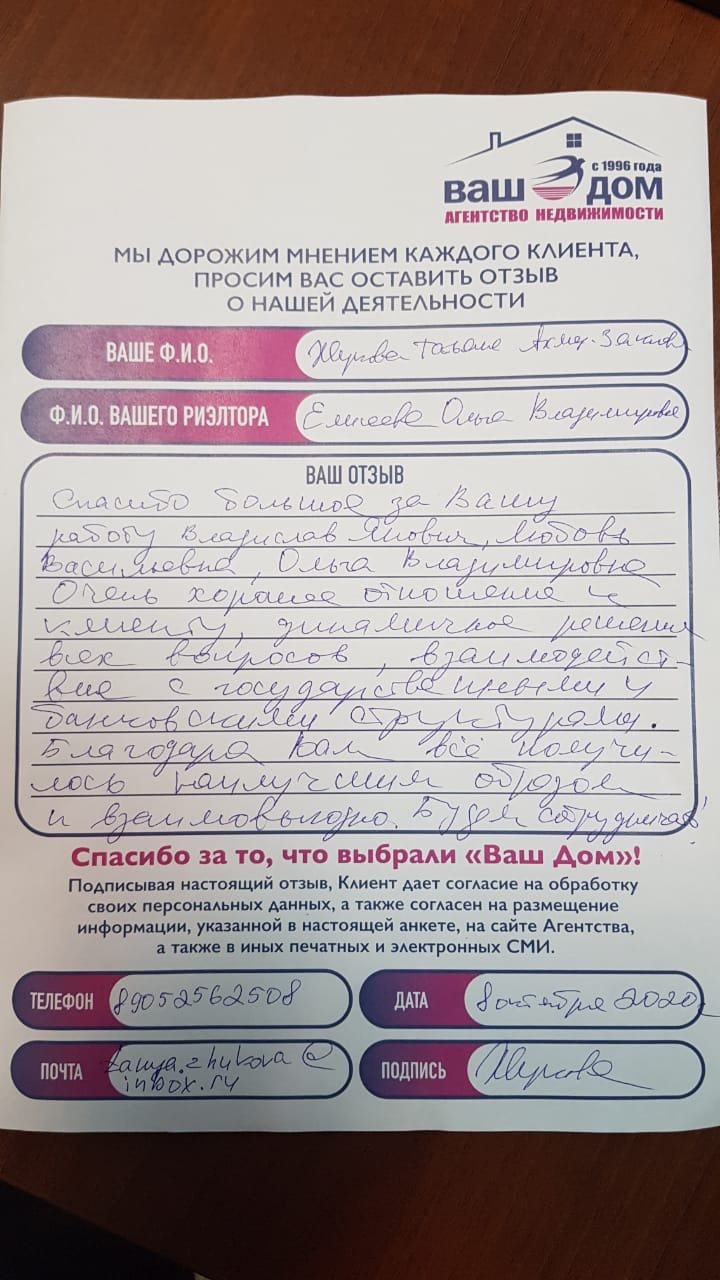 с 1996 года
ваш дом
АГЕНТСТВО НЕДВИЖИМОСТИ
МЫ ДОРОЖИМ МНЕНИЕМ КАЖДОГО КЛИЕНТА,
ПРОСИМ ВАС ОСТАВИТЬ ОТЗЫВ
О НАШЕЙ ДЕЯТЕЛЬНОСТИ
ВАШЕ Ф.И.О. Жукова Татьяна
Ф.И.О. ВАШЕГО РИЭЛТОРА Елисеева Ольга Владимировна
ВАШ ОТЗЫВ
Спасибо большое за Вашу
работу Владислав Янович, Любовь
Васильевна, Ольга Владимировна
Очень хорошее отношение к
клиенту, динамичное решение
всех вопросов, взаимодейст-
вие с государственными и
банковскими структурами.
Благодаря Вам всё получи-
лось наилучшим образом
и взаимовыгодно. Будем сотрудничать!
Спасибо за то, что выбрали «Ваш Дом»!
Подписывая настоящий отзыв, Клиент дает согласие на обработку
своих персональных данных, а также согласен на размещение
информации, указанной в настоящей анкете, на сайте Агентства,
а также в иных печатных и электронных СМИ.
ТЕЛЕФОН 89052562508 ДАТА 8 октября 2020
ПОЧТА tanya.zhukova@
inbox.ru
ПОДПИСЬ Жукова